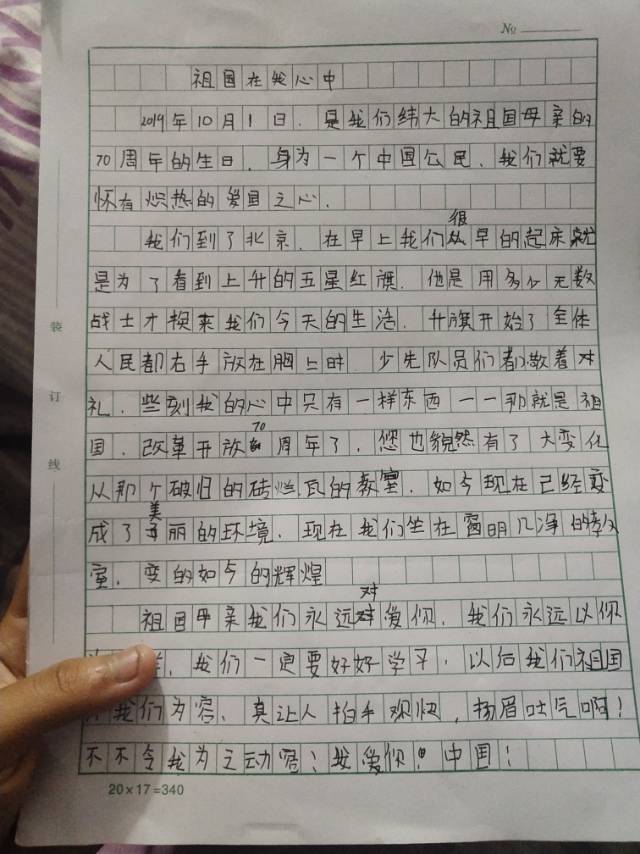 №
祖国在我心中
2019年10月1日.是我们纬大的祖国母亲的
70周年的生日.身为一个中国公民、我们就要
怀有炽热的爱国之心.
我们到了北京.在早上我们很早的起床就
是为了看到上升的五星红旗.他是用多少无数
战士才换来我们今天的生活.升旗开始了全体
人民都右手放在胸上时.少先队员们都敬着对
礼.些刻我的心中只有一样东西一一那就是祖
国.改革开放70周年了,您也貌然有了大变化
从那个破旧的砖烂瓦的教室.如今现在已经变
成了美丽的环境.现在我们坐在窗明几净的教
室.变的如今的辉煌
祖国母亲我们永远对爱你.我们永远以你
我们一定要好好学习.以后我们祖国
我们为容、真让人拍手欢快,杨眉吐气啊!
不不令我为之动容!我爱你!中国!
装
订
线
20×17=340